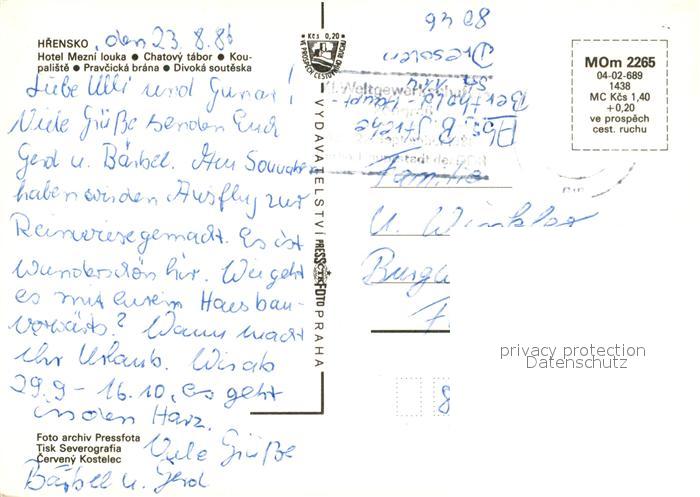 HŘENSKO, den 23.8.86
Hotel Mezní louka ● Chatový tábor ● Kou-
paliště ● Pravčická brána ● Divoká soutěska
Liebe Ulli und Gunar!
Viele Grüße senden Euch
Gerd u. Bärbel. Am Sonnabend
haben wir den Ausflug zur
gemacht. Es ist
wunderschön hir. Wie geht
es mit eurem Hausbau
vorwärts? Wann macht
Ihr Urlaub. Wir ab
29.9 - 16.10, es geht
in den Harz.
Viele Grüße
Bärbel u. Gerd
Foto archiv Pressfota
Tisk Severografia
Červený Kostelec
Kčs 0,20
VE PROSPĚCH CESTOVNÍHO RUCHU
VYDAVATELSTVÍ PRESSFOTO PRAHA
Abs. B.
Berthold-Haupt-
Str.
Dresden
8046
Weltgewerkschafts
Familie
U. Winkler
Burg
8
MOm 2265
04-02-689
1438
MC Kčs 1,40
+0,20
ve prospěch
cest. ruchu
privacy protection
Datenschutz